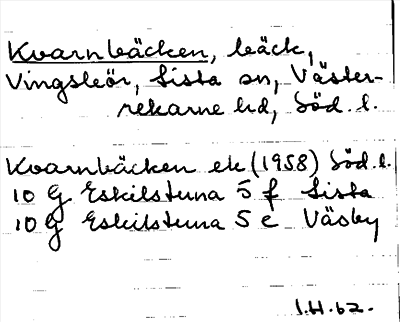 Kvarnbäcken, bäck,
Vingsleör, Lista sn, Väster-
rekarne hd, Söd. l.
Kvarnbäcken ek (1958) Söd. l.
10 G Eskilstuna 5 f Lista
10 G Eskilstuna 5 e Väsby
I.H. 62.